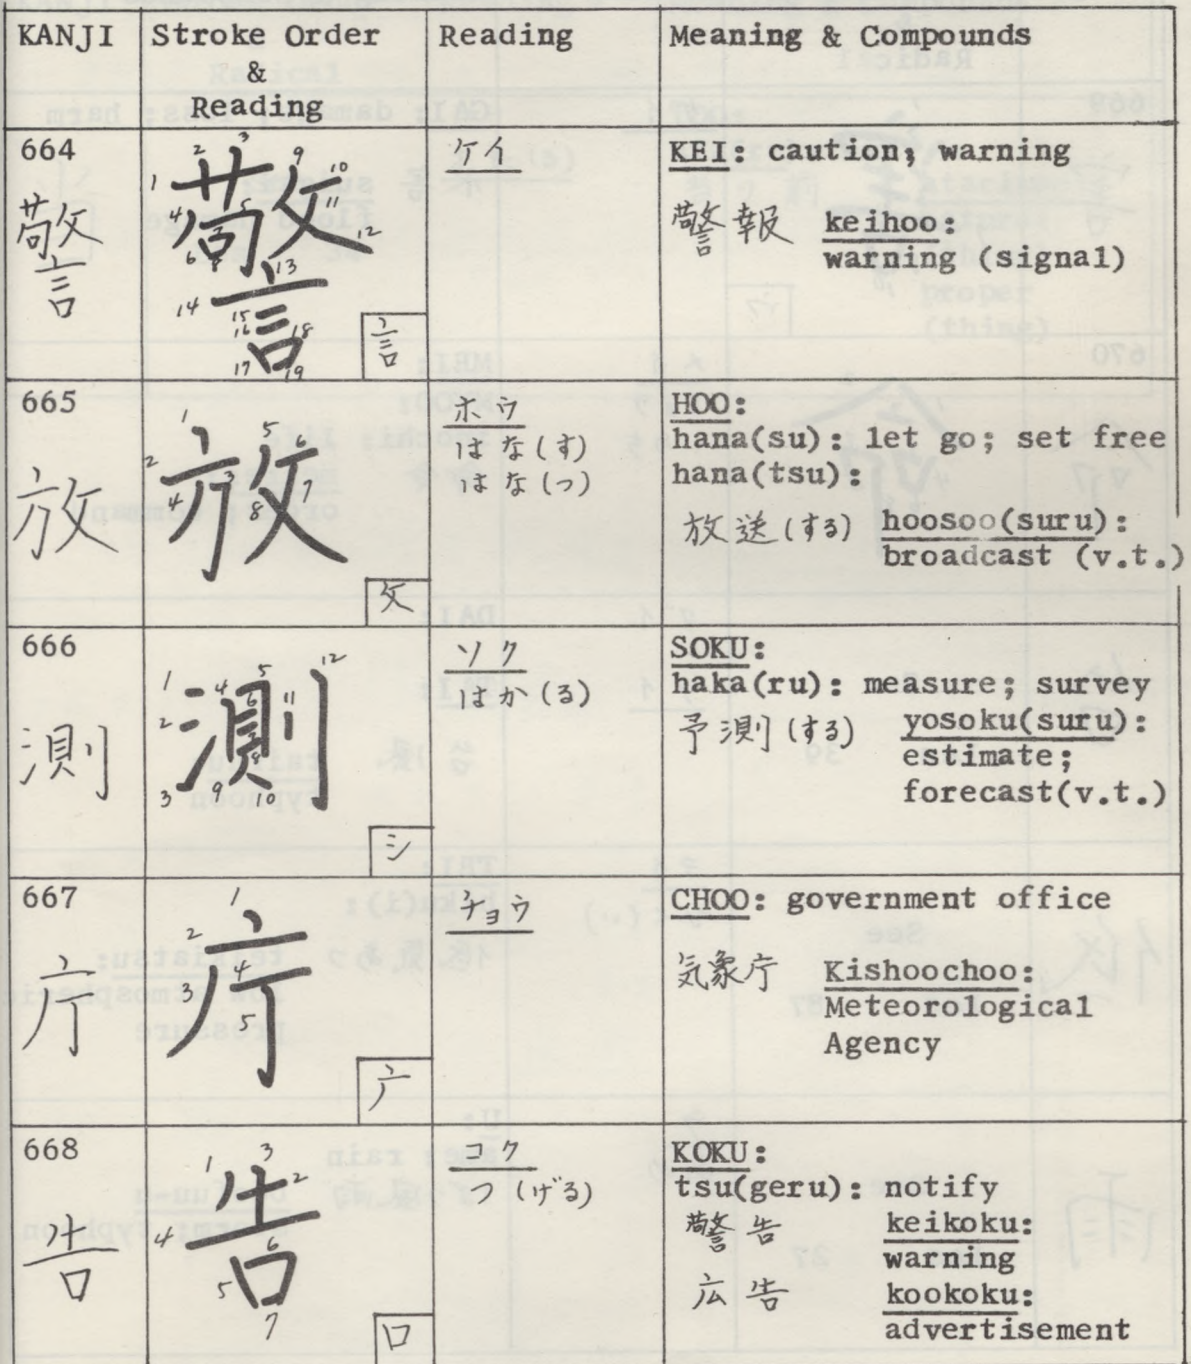 KANJI Stroke Order Reading Meaning & Compounds
&
Reading
664
警
1 2 3 4 5 6 8 9 10 11 12 13 14 15 16 17 18 19
警
言
ケイ
KEI: caution; warning
警報 keihoo:
warning (signal)
665
放
1 2 3 4 5 6 7 8
放
攵
ホウ
はな(す)
はな(つ)
HOO:
hana(su): let go; set free
hana(tsu):
放送(する) hoosoo(suru):
broadcast (v.t.)
666
測
1 2 3 4 5 6 9 10 11 12
測
シ
ソク
はか(る)
SOKU:
haka(ru): measure; survey
予測(する) yosoku(suru):
estimate;
forecast(v.t.)
667
庁
1 2 3 4 5
庁
广
チョウ
CHOO: government office
気象庁 Kishoochoo:
Meteorological
Agency
668
告
1 2 3 4 5 6 7
告
口
コク
つ(げる)
KOKU:
tsu(geru): notify
警告 keikoku:
warning
広告 kookoku:
advertisement